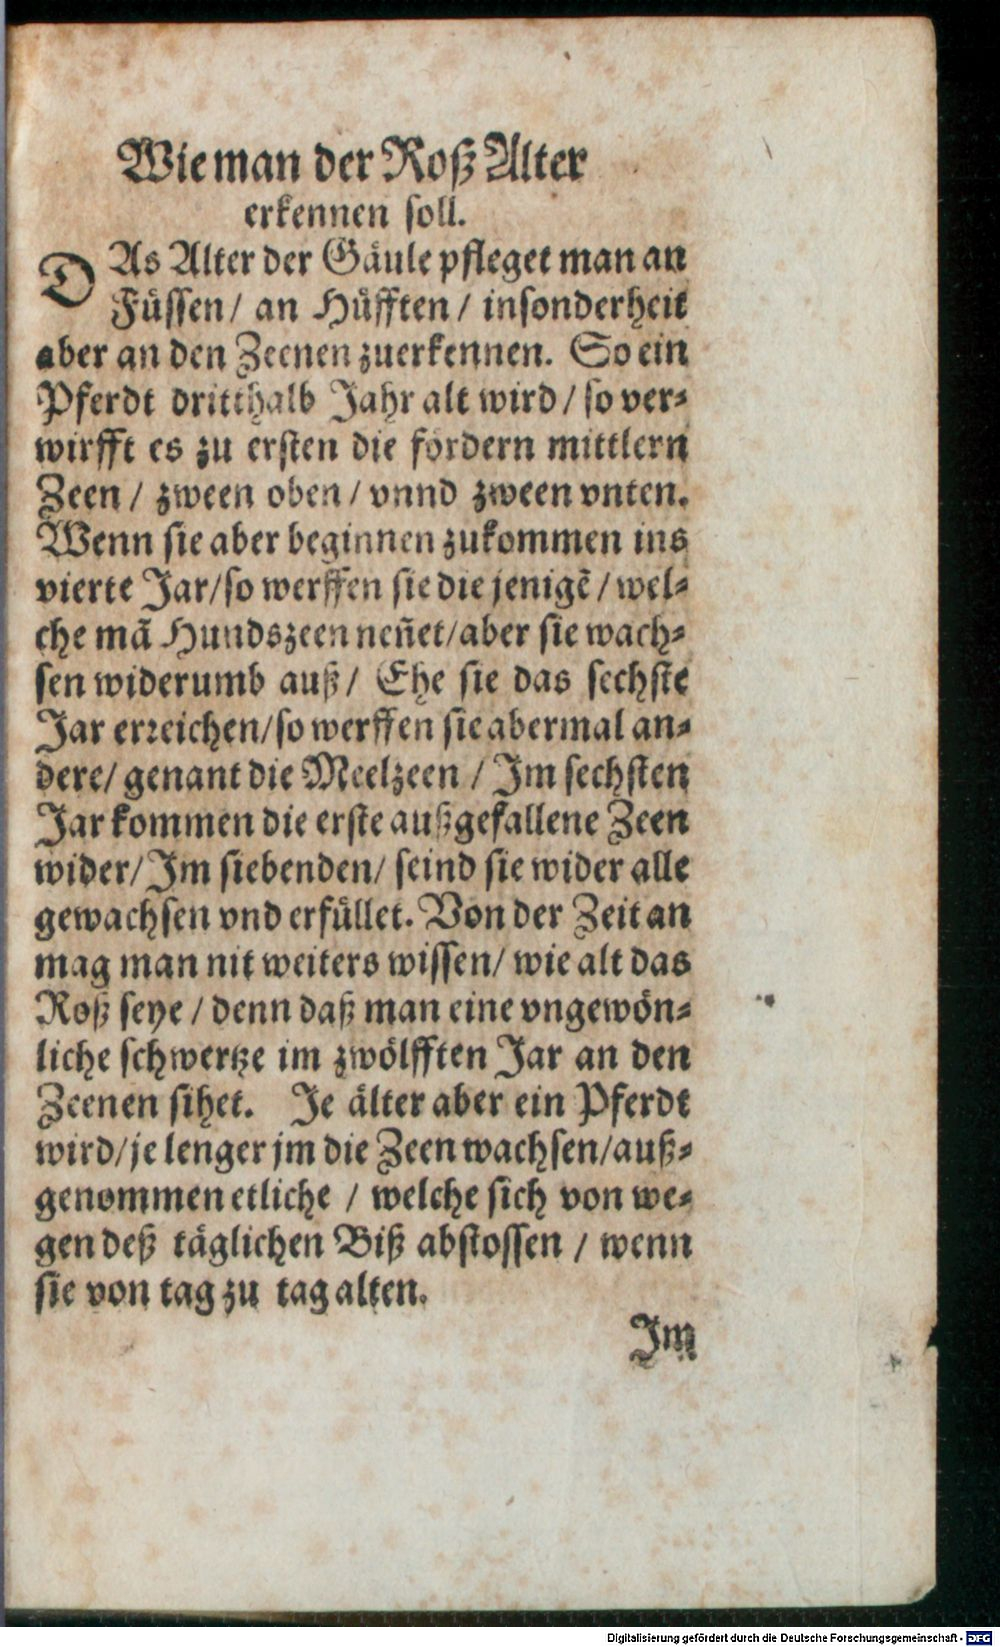 Wie man der Roß Alter
erkennen soll.
DAs Alter der Gäule pfleget man an
Füssen / an Hüfften / insonderheit
aber an den Zeenen zuerkennen. So ein
Pferdt dritthalb Jahr alt wird / so ver-
wirfft es zu ersten die fördern mittlern
Zeen / zween oben / vnnd zween vnten.
Wenn sie aber beginnen zukommen ins
vierte Jar/so werffen sie die jenigẽ / wel-
che mã Hundszeen neñet/aber sie wach-
sen widerumb auß/ Ehe sie das sechste
Jar erreichen/so werffen sie abermal an-
dere/ genant die Meelzeen / Im sechsten
Jar kommen die erste außgefallene Zeen
wider/Im siebenden/ seind sie wider alle
gewachsen vnd erfüllet. Von der Zeit an
mag man nit weiters wissen/ wie alt das
Roß seye / denn daß man eine vngewön-
liche schwertze im zwölfften Jar an den
Zeenen sihet. Je älter aber ein Pferdt
wird/je lenger jm die Zeen wachsen/auß-
genommen etliche / welche sich von we-
gen deß täglichen Biß abstossen / wenn
sie von tag zu tag alten.
Im
Digitalisierung gefördert durch die Deutsche Forschungsgemeinschaft - DFG